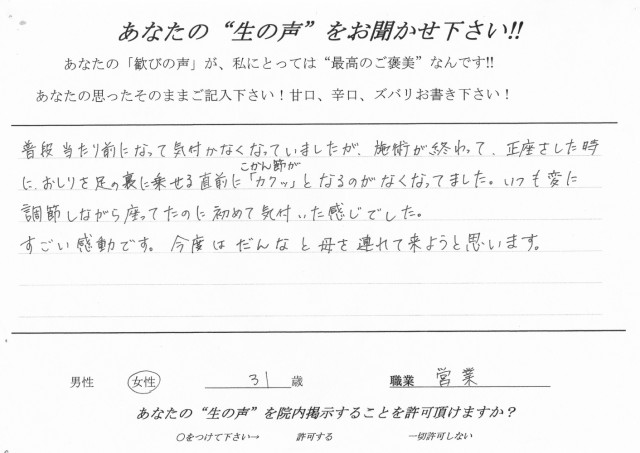 あなたの“生の声”をお聞かせ下さい!!
あなたの「歓びの声」が、私にとっては“最高のご褒美”なんです!!
あなたの思ったそのままご記入下さい！甘口、辛口、ズバリお書き下さい！
普段当たり前になって気付かなくなっていましたが、施術が終わって、正座をした時
こかん節が
に、おしりを足の裏に乗せる直前に「カクッ」となるのがなくなってました。いつも変に
調節しながら座ってたのに初めて気付いた感じでした。
すごい感動です。今度はだんなと母を連れて来ようと思います。
男性 女性 31歳 職業 営業
あなたの“生の声”を院内掲示することを許可頂けますか？
○をつけて下さい→ 許可する 一切許可しない